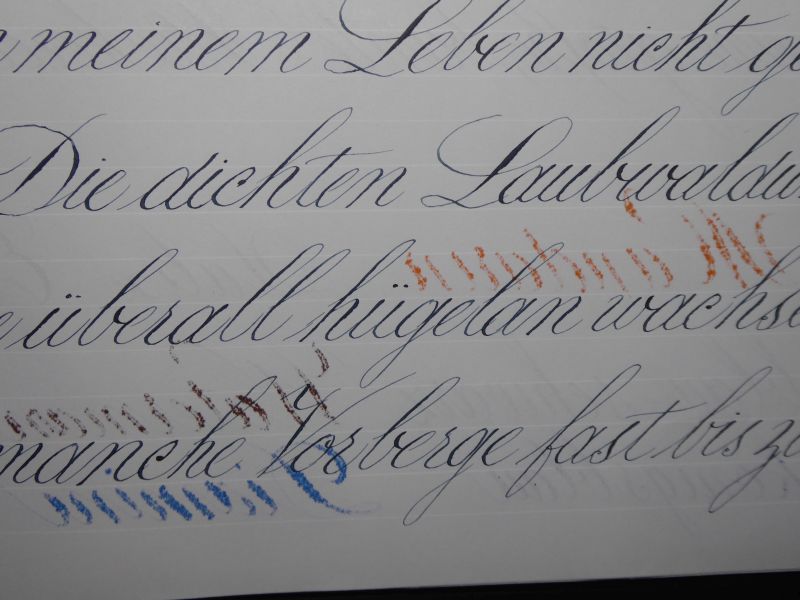 meinem Leben nicht
Die dichten Laubwaldu
überall hügelan wachse
manche Vorberge fast bis zu